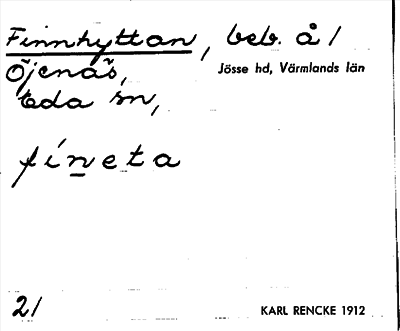 Finnhyttan, beb. å /
Öjenäs, Jösse hd, Värmlands län
Eda sn,
fíneta
21 KARL RENCKE 1912